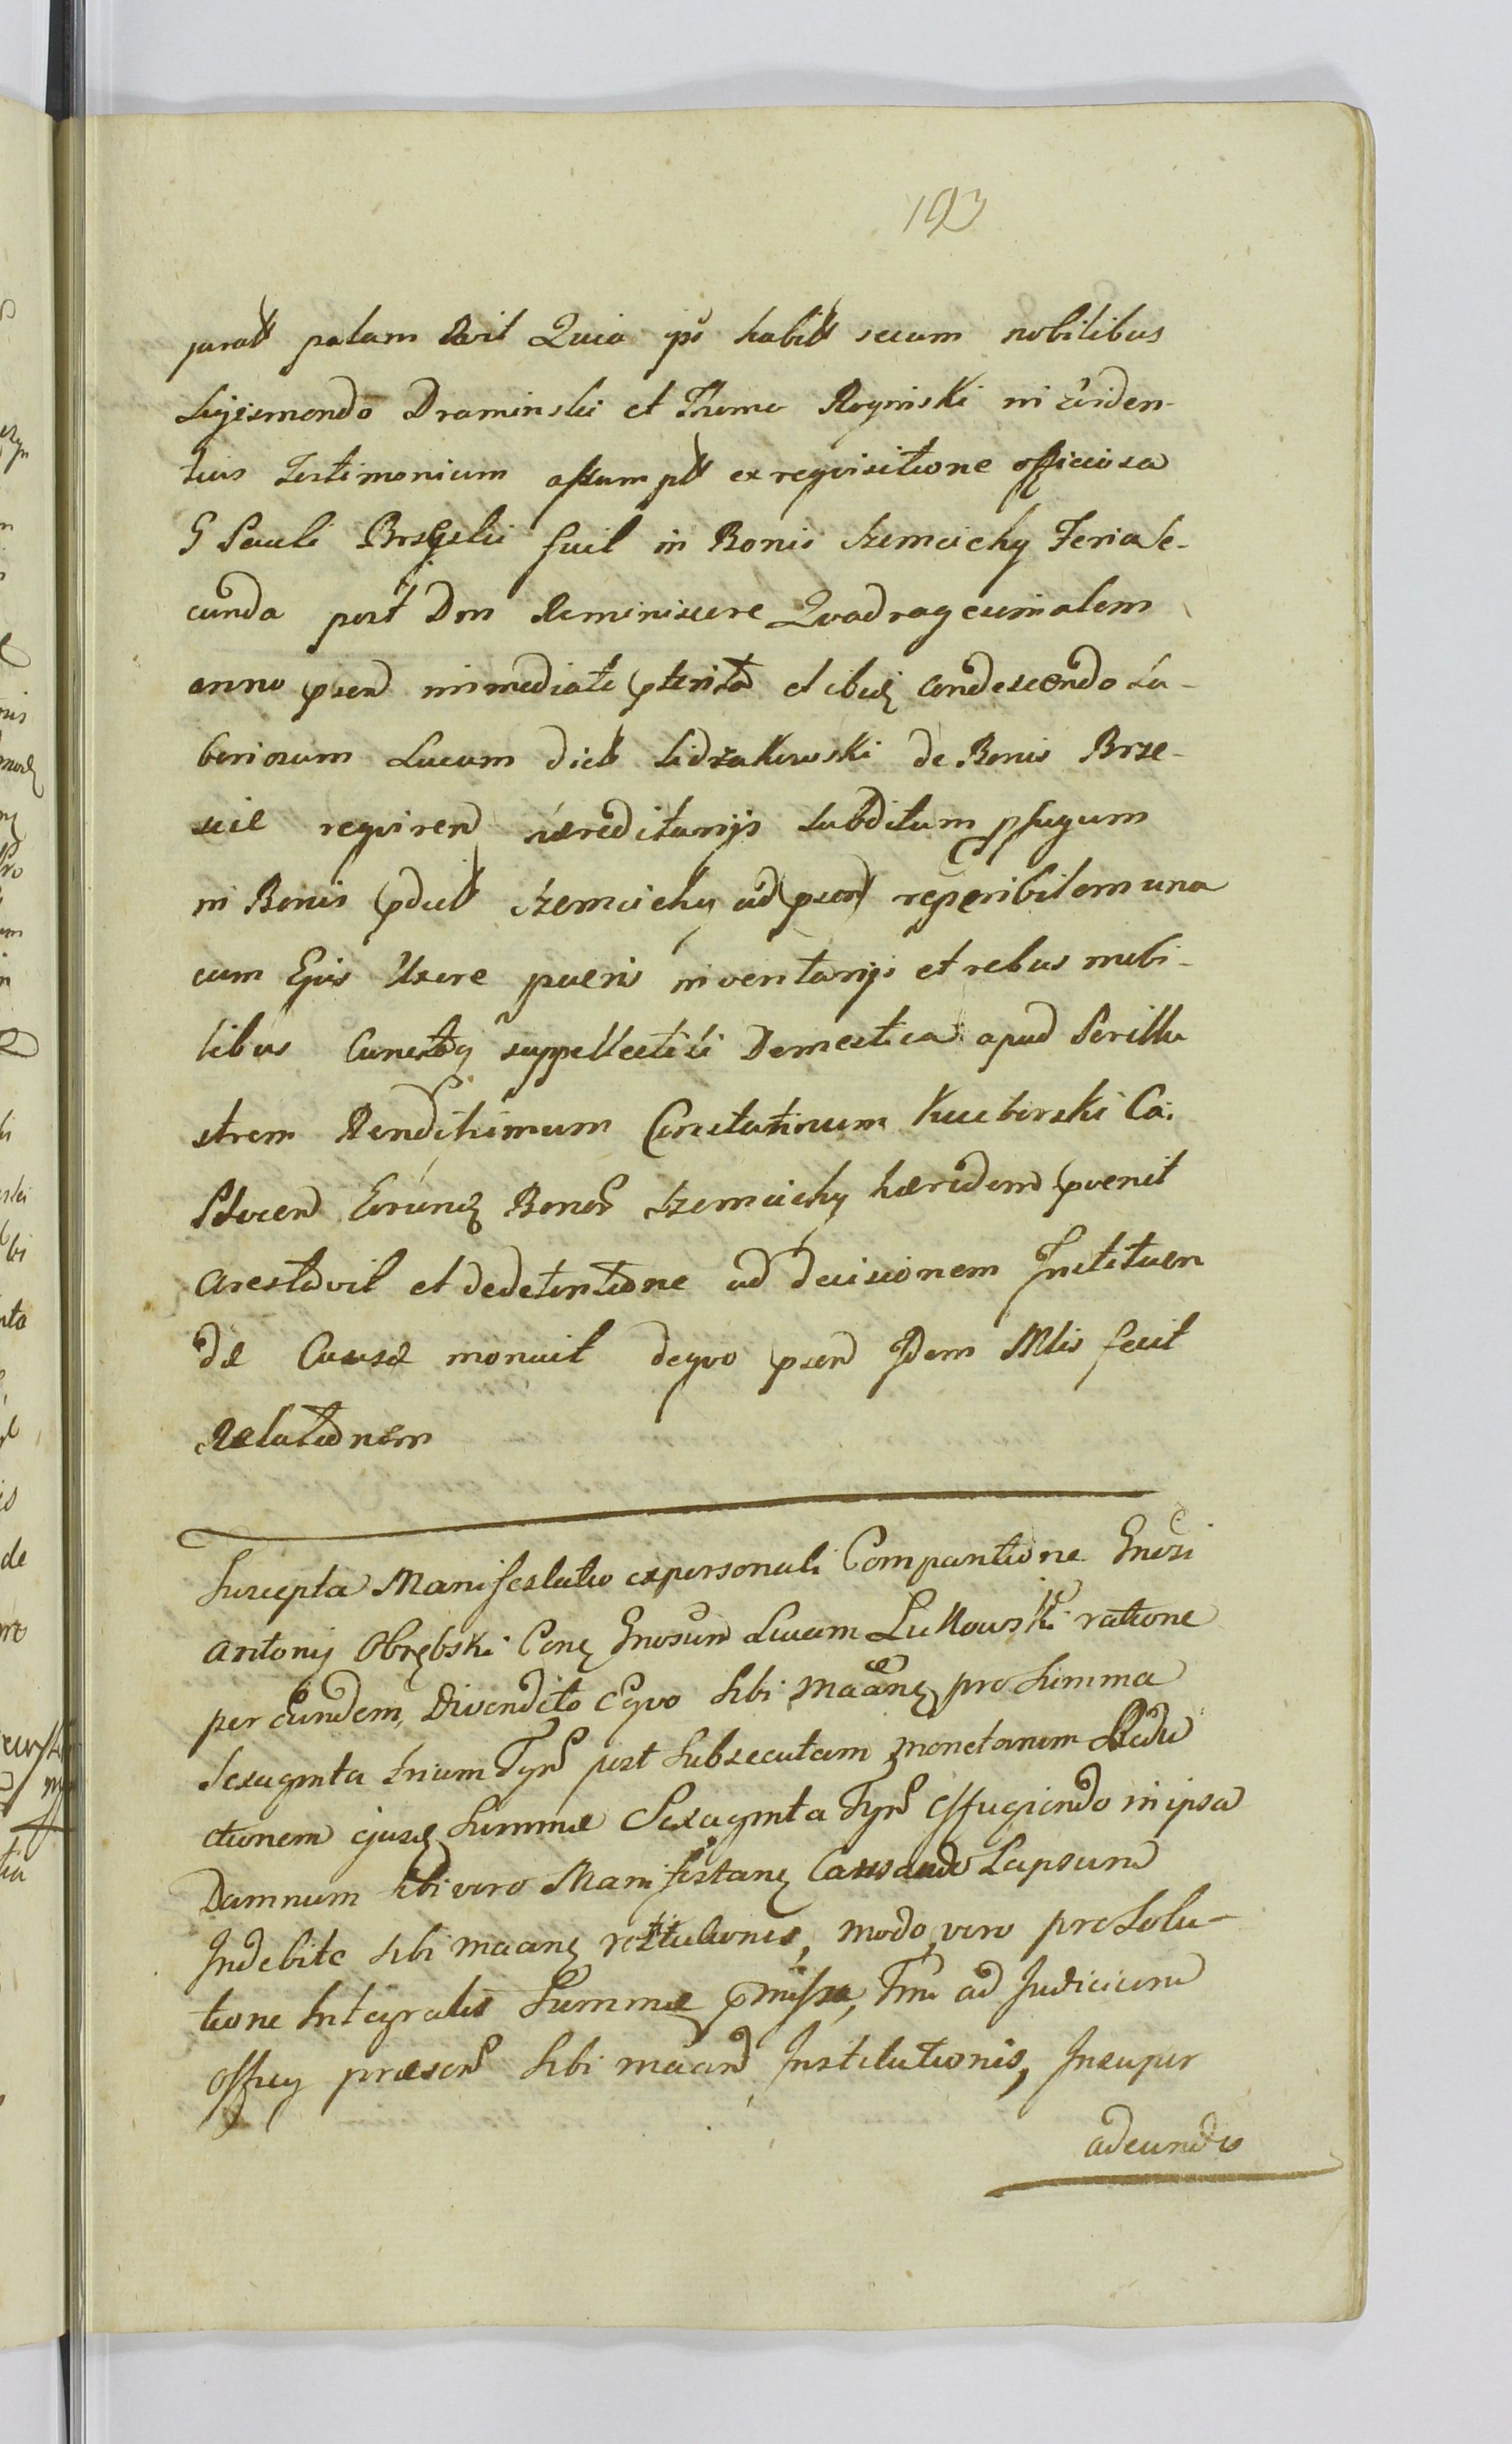 193
jurat palam Rvit Quia ipse habit secum nobilibus
Sigismondo Draminski et Thoma Roginski in eviden-
tius Testimonium assumpt ex requisitione officiosa
G Pauli fuit in Bonis Szemcichy Feria Se-
cunda post Dm Reminiscere Quadragesimalem
anno psend immediate pterita et ibidem condescendo La-
boriosum Lucam dict Sidzakowski de Bonis Brze-
scie requiren hæreditarijs subditum pfugum
in Bonis pdict Szemcichy ad psen reperibilem una
cum Ejus Uxore pueris inventarijs et rebus mobi-
libus Cunctaq suppellectili Domestica apud Perillu
strem Rendissimum Constatinum Kuciborski Ca:
Plocen Eorundem Bonor Szemcichy hæredem pvenit
arestavit et de detentione ad decisionem Instituen
dæ Causæ monuit de quo psen Idem Mlis fecit
Relationem
Suscepta Manifestatio ex personali Comparitione Gnosi
Antonij Obrębski Con Gnosum Lucam Lukowski ratione
per eundem, Divendito Equo sibi Maan pro Summa
Sexaginta trium Tyn post subsecutam monetarum Redu
ctionem ejusd Summæ Sexaginta Tyn effugiendo in ipsa
Damnum sibi vero Manifestan Causando Lapsum
Indebite sibi maan restitutionis, modo vero pro Solu-
tione Integralis Summæ pmissa, Tm ad Judicium
Officy præsen sibi maan Institutionis, Insuper
adeundo